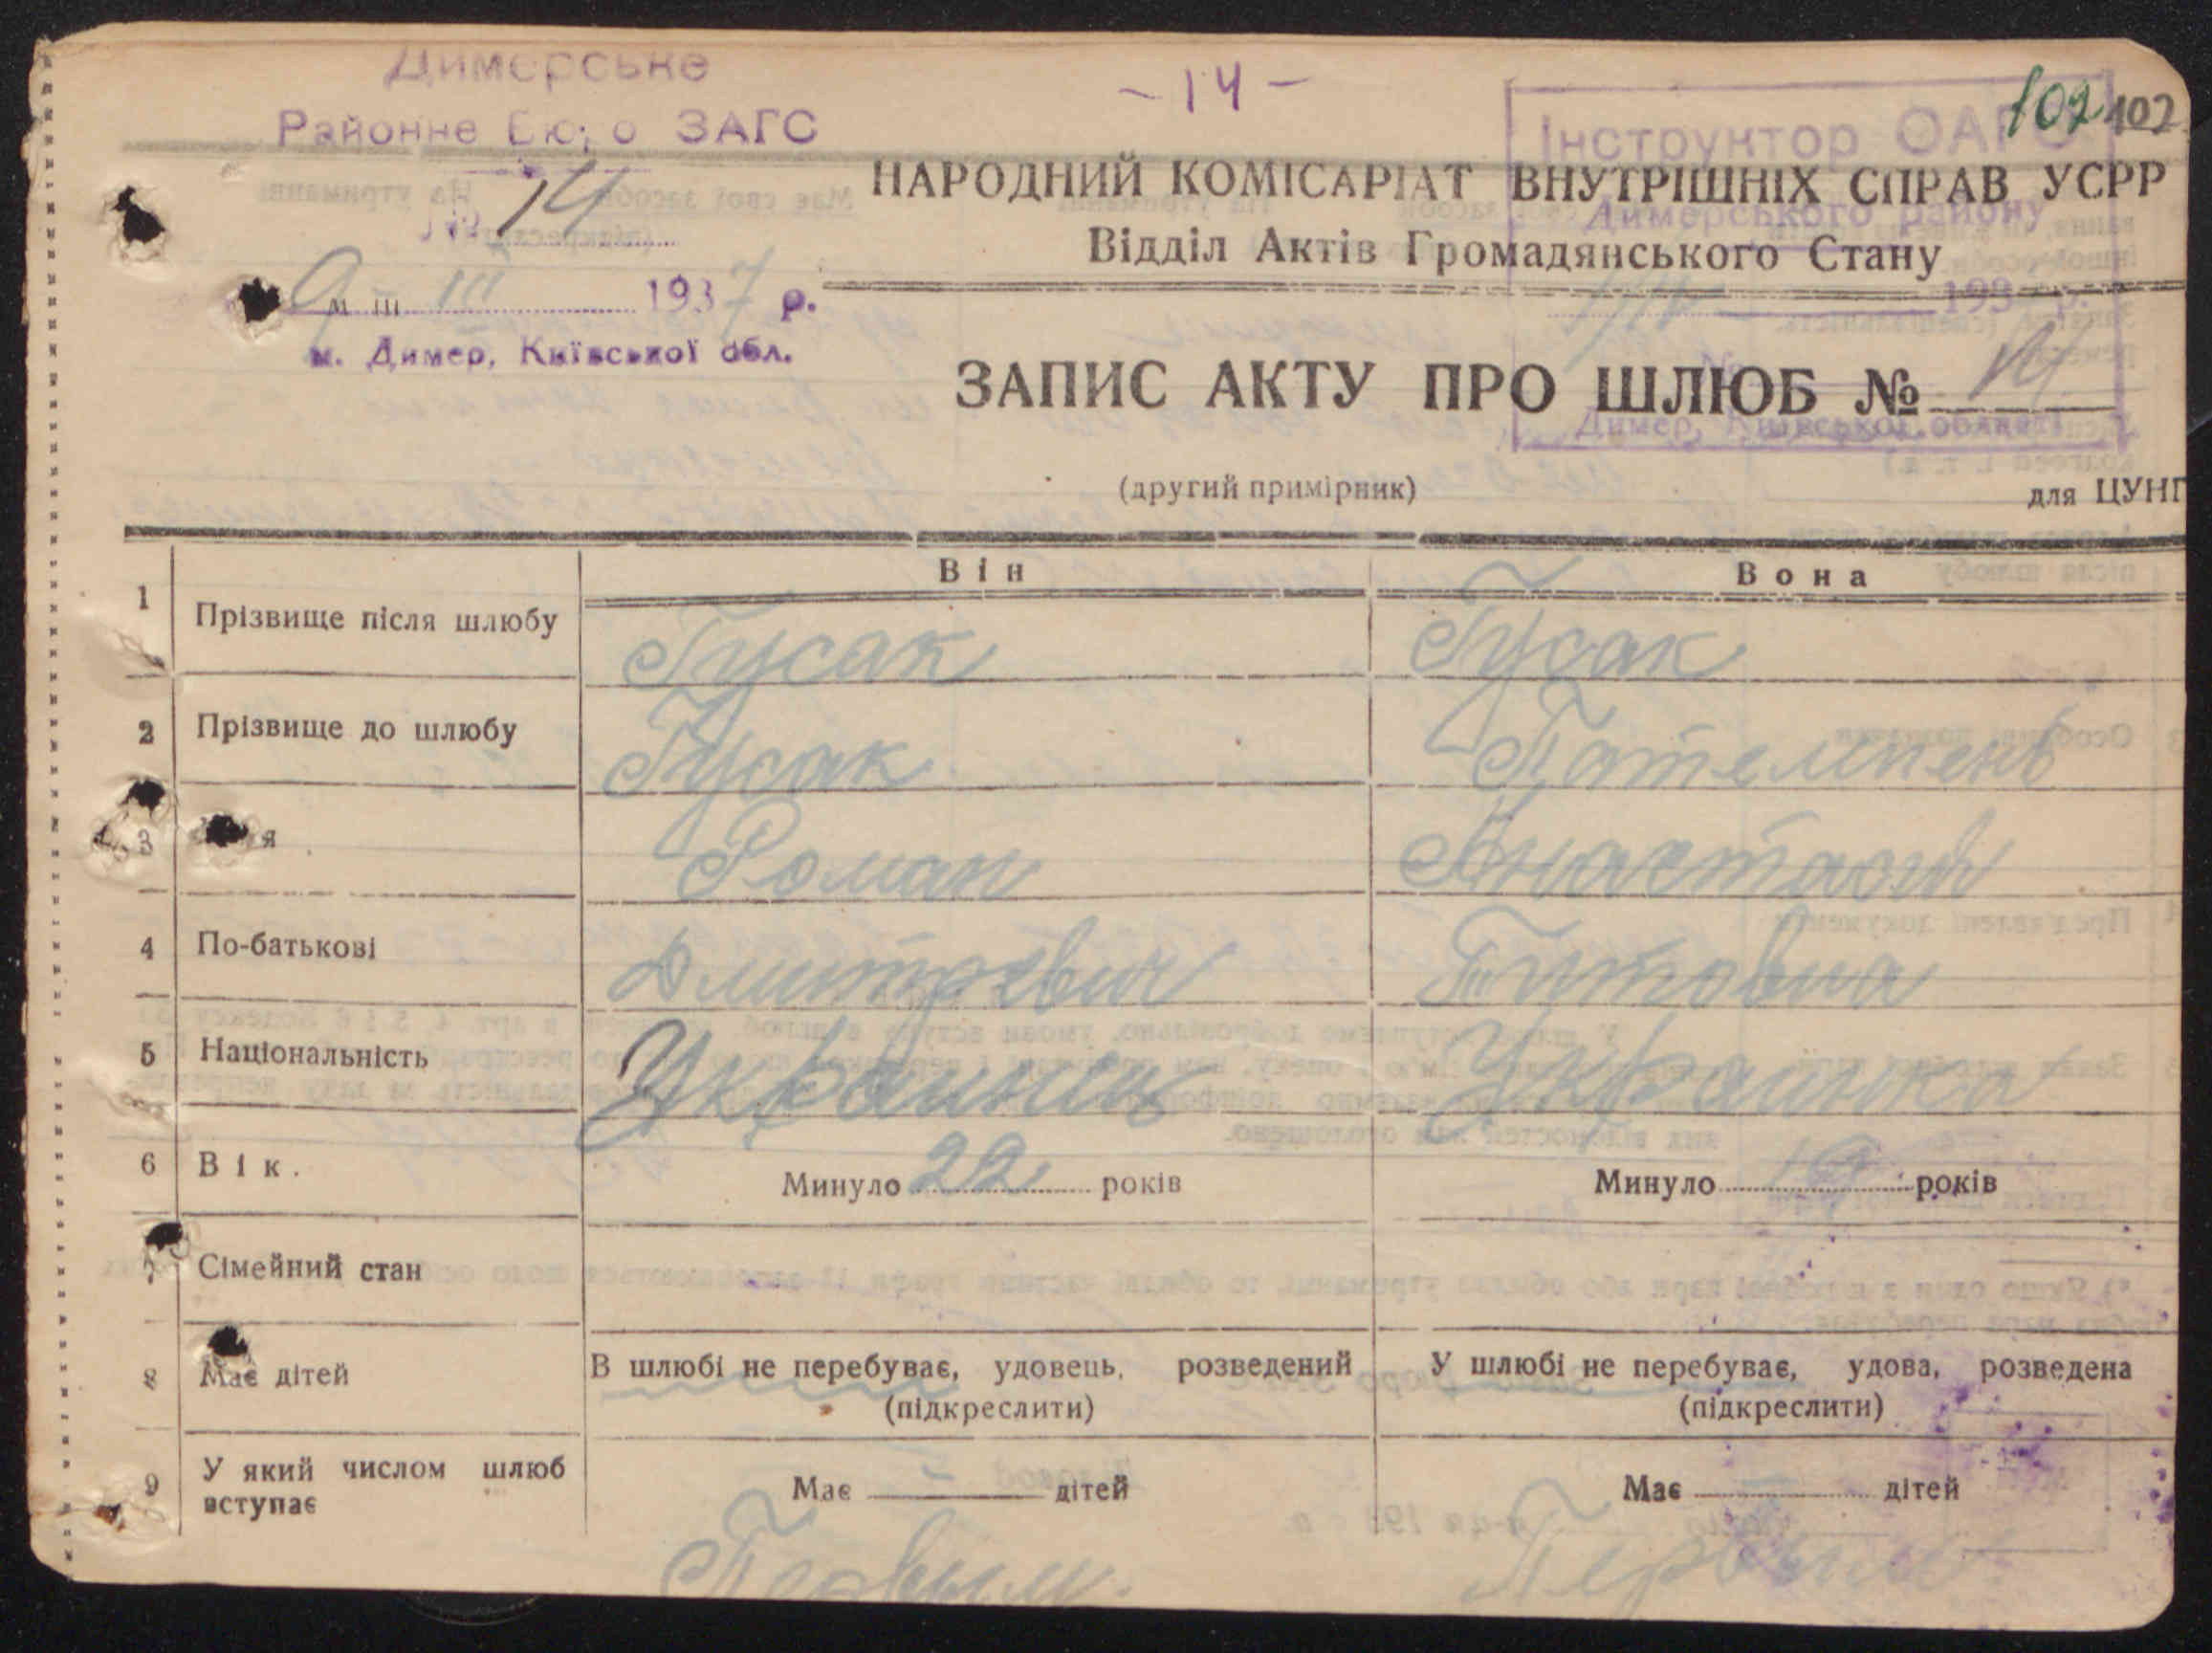 Димерське
Районне Бюро ЗАГС
- 14 -
102 102
№ 14
9 - III 1937 р.
м. Димер, Київської обл.
Інструктор ОАГС
Димерського району
193 р.
№
Димер, Київської області
НАРОДНИЙ КОМІСАРІАТ ВНУТРІШНІХ СПРАВ УСРР
Відділ Актів Громадянського Стану
ЗАПИС АКТУ ПРО ШЛЮБ № 14
(другий примірник)
для ЦУНГ
Він Вона
1 Прізвище після шлюбу Гусак Гусак
2 Прізвище до шлюбу Гусак
3 я Роман Анастасия
4 По-батькові Дмитревич Титовна
5 Національність Украинец Украинка
6 Вік. Минуло 22 років Минуло 19 років
7 Сімейний стан
В шлюбі не перебуває, удовець, розведений У шлюбі не перебуває, удова, розведена
(підкреслити) (підкреслити)
8 Має дітей
Має — дітей Має — дітей
9 У який числом шлюб
вступає
Первым. Первым